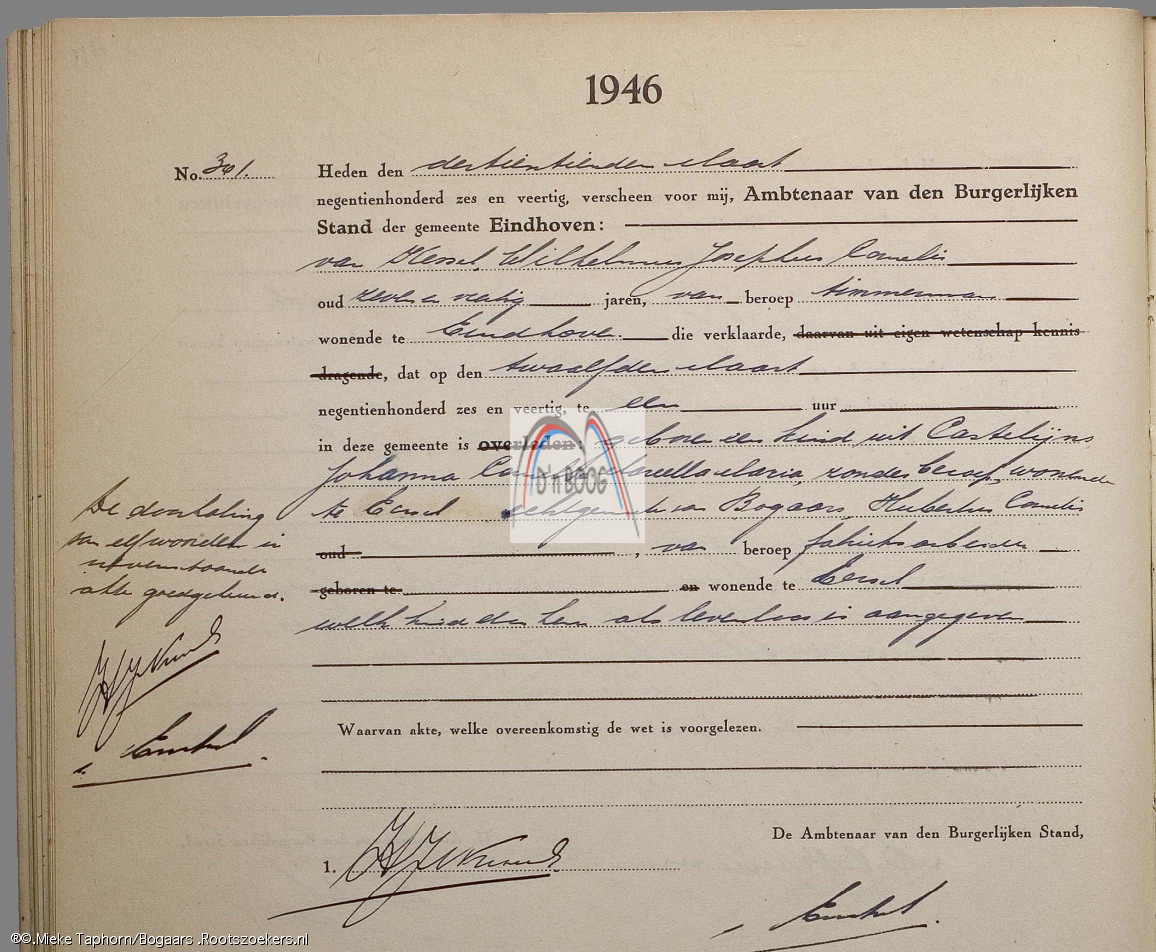 1946
No. 301. Heden den dertientienden Maart
negentienhonderd zes en veertig, verscheen voor mij, Ambtenaar van den Burgerlijken
Stand der gemeente Eindhoven:
van Kessel, Wilhelmus Josephus Cornelis
oud zeven en veertig jaren, van beroep timmerman
wonende te Eindhoven die verklaarde, daarvan uit eigen wetenschap kennis
dragende, dat op den twaalfden Maart
negentienhonderd zes en veertig, te een uur
in deze gemeente is overleden: geboren een kind uit Castelijns
Johanna Maria, zonder beroep, wonende
te Eersel echtgenoote van Bogaars, Hubertus Cornelis
oud , van beroep fabrieksarbeider
geboren te en wonende te Eersel
welk kind door hem als levenloos is aangegeven
De doorhaling
van elf woorden in
nevenstaande
akte goedgekeurd.
Waarvan akte, welke overeenkomstig de wet is voorgelezen.
De Ambtenaar van den Burgerlijken Stand,
1.
D'n BOOG
®©.Mieke Taphorn/Bogaars .Rootszoekers.nl